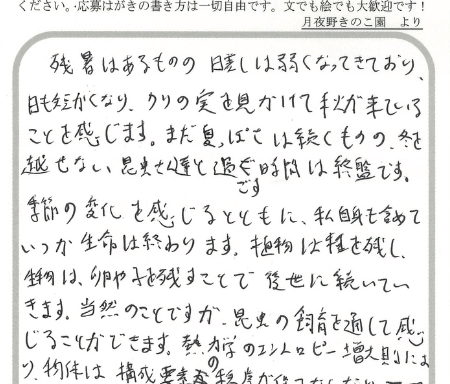 ください。・応募はがきの書き方は一切自由です。文でも絵でも大歓迎です！
月夜野きのこ園　より
残暑はあるものの 日差しは弱くなってきており、
日も短かくなり、クリの実を見かけて秋が来ている
ことを感じます。まだ夏っぽさは続くものの、冬を
越せない昆虫さん達と過ごす時間は終盤です。
季節の変化を感じるとともに、私自身も含めて
いつか生命は終わります。植物は種を残し、
生物は、卵や子を残すことで後世に続いてい
きます。当然のことですが、昆虫の飼育を通して感
じることができます。熱力学のエントロピー増大則によ
り、物体は 構成要素の